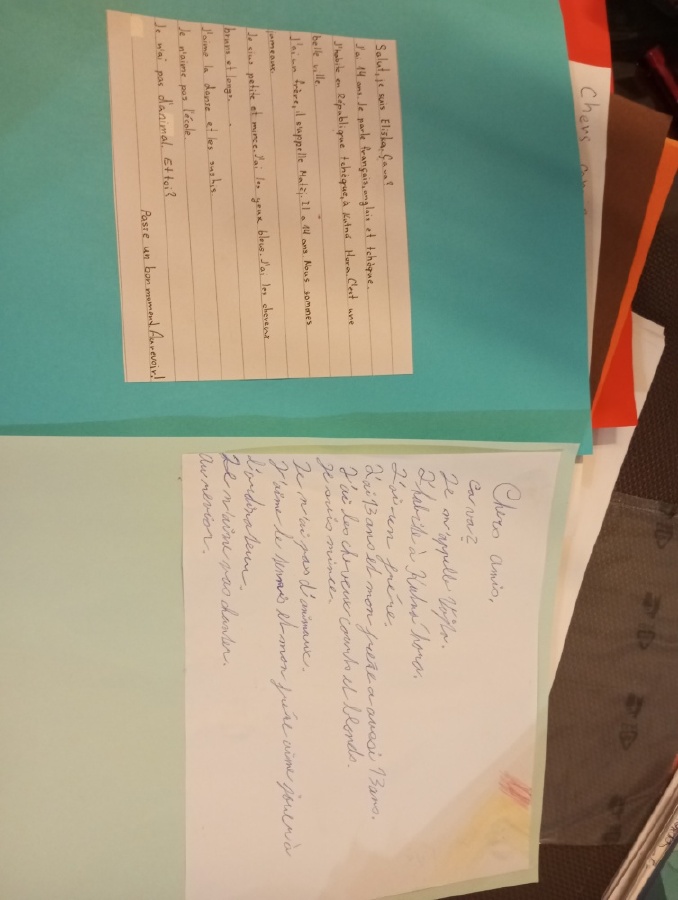 Salut, je suis Eliška. Ça va?
J'ai 14 ans. Je parle français, anglais et tchèque.
J'habite en République tchèque, à Kutná Hora. C'est une
belle ville.
J'ai un frère, il s'appelle Matěj. Il a 14 ans. Nous sommes
jumeaux.
Je suis petite et mince. J'ai les yeux bleus. J'ai les cheveux
bruns et longs.
J'aime la danse et les sushis.
Je n'aime pas l'école.
Je n'ai pas d'animal. Et toi?
Passe un bon moment. Aurevoir!
Chers
Chers amis,
ca va?
Je m'appelle
J'habite à Kutná Hora.
J'ai un frére.
J'ai 13 ans et mon frére a aussi 13 ans.
J'ai les cheveux courts et blonds.
Je suis mince.
Je n'ai pas d'animaux.
J'aime le tennis et mon frére aime jouer à
l'ordinateur.
Je n'aime pas danser.
Au revoir.